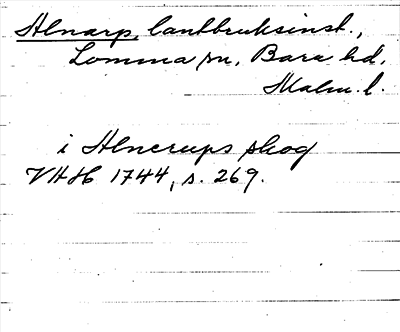 Alnarp, lantbruksinst.,
Lomma sn, Bara hd,
Malm. l.
i Alnerups skog
VAH 1744, s. 269.